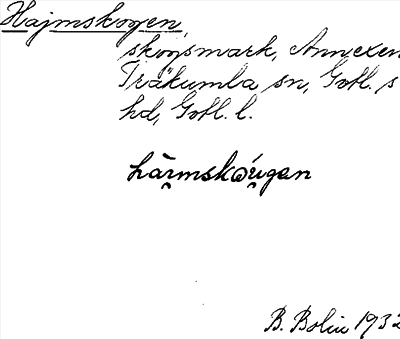 Hajmskogen,
skogsmark, Annexen
Träkumla sn, Gotl. s
hd, Gotl. l.
hàrmskǿugen
B. Bolin 1932